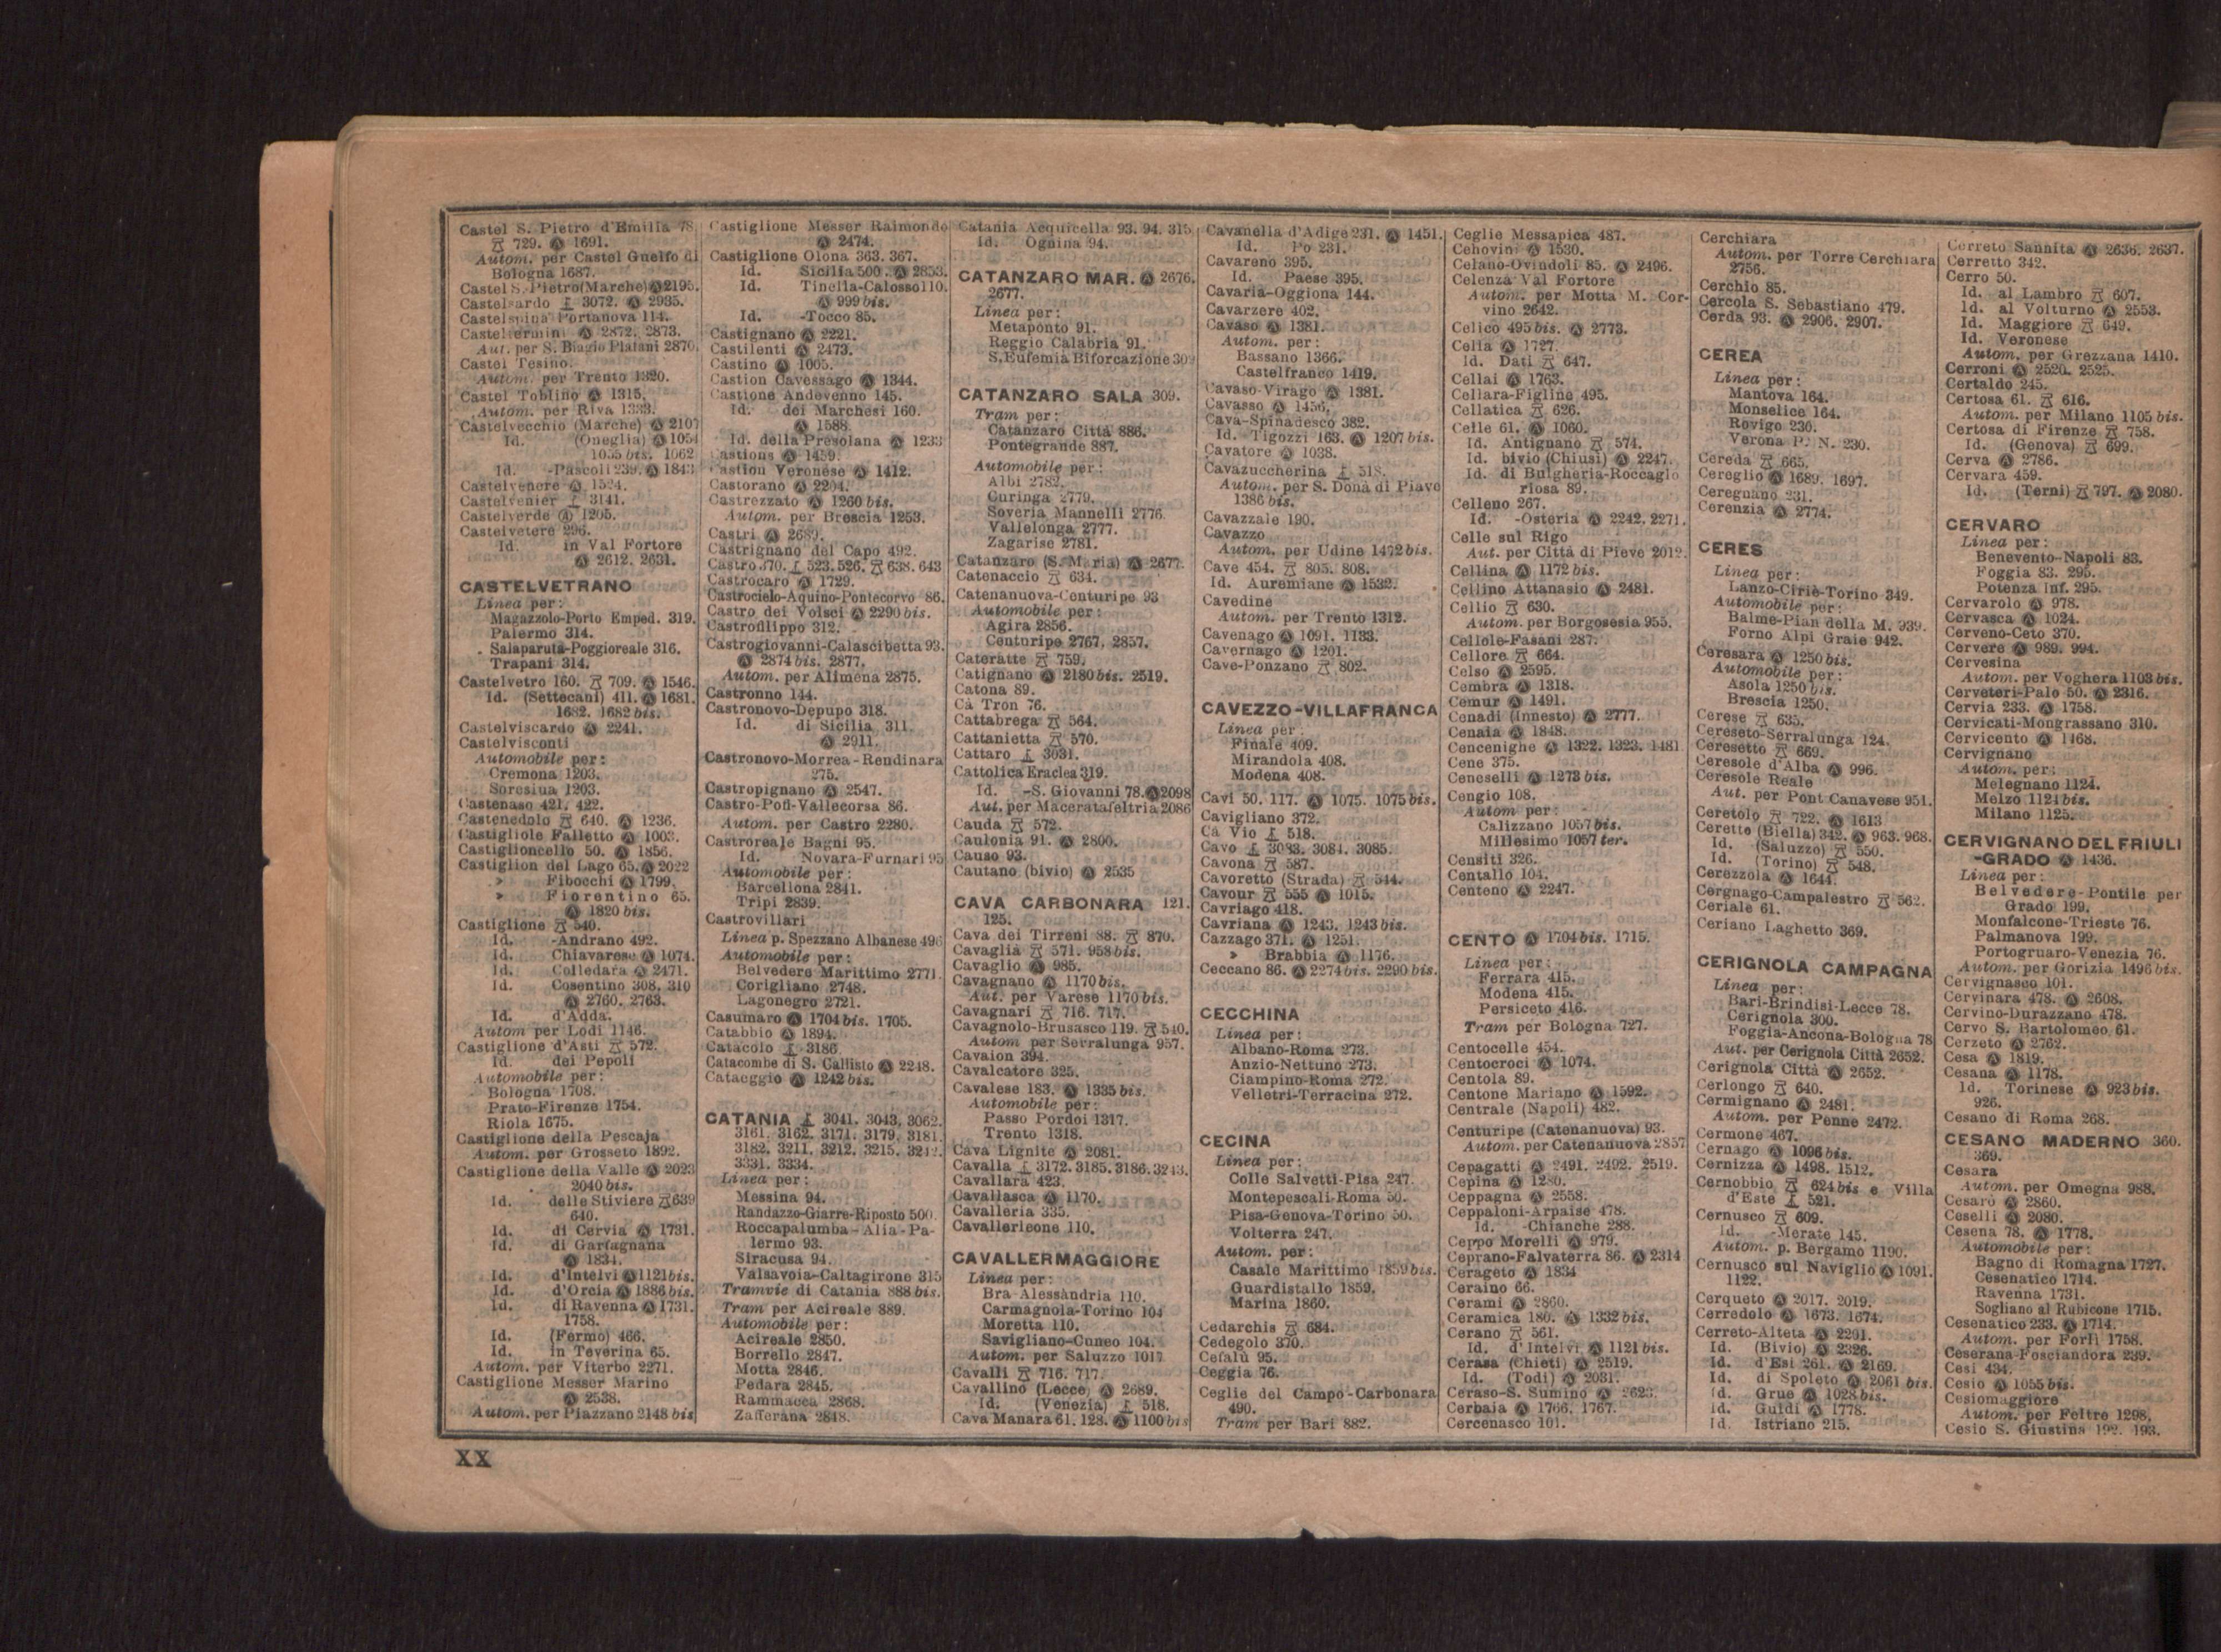 Castel S. Pietro d'Emilia 78.
729. Ⓐ 1691.
Autom. per Castel Guelfo di
Bologna 1687.
Castel S. Pietro (Marche) Ⓐ 2195.
Castelsardo 3072. Ⓐ 2935.
Castelspina Portanova 114.
Casteltermini Ⓐ 2872. 2873.
Aut. per S. Biagio Platani 2870.
Castel Tesino.
Autom. per Trento 1320.
Castel Toblino Ⓐ 1315.
Autom. per Riva 1333.
Castelvecchio (Marche) Ⓐ 2107
Id. (Oneglia) Ⓐ 1054
1055 bis. 1062
Id. -Pascoli 239. Ⓐ 1843
Castelvenere Ⓐ 1524.
Castelvenier 3141.
Castelverde Ⓐ 1205.
Castelvetere 296.
Id. in Val Fortore
Ⓐ 2612. 2631.
CASTELVETRANO
Linea per:
Magazzolo-Porto Emped. 319.
Palermo 314.
Salaparuta-Poggioreale 316.
Trapani 314.
Castelvetro 160. 709. Ⓐ 1546.
Id. (Settecani) 411. Ⓐ 1681.
1682. 1682 bis.
Castelviscardo Ⓐ 2241.
Castelvisconti
Automobile per:
Cremona 1203.
Soresina 1203.
Castenaso 421. 422.
Castenedolo 640. Ⓐ 1236.
Castigliole Falletto Ⓐ 1003.
Castiglioncello 50. Ⓐ 1856.
Castiglion del Lago 65. Ⓐ 2022
» Fibocchi Ⓐ 1799.
» Fiorentino 65.
Ⓐ 1820 bis.
Castiglione 540.
Id. -Andrano 492.
Id. Chiavarese Ⓐ 1074.
Id. Colledara Ⓐ 2471.
Id. Cosentino 308. 310
Ⓐ 2760. 2763.
Id. d'Adda.
Autom per Lodi 1146.
Castiglione d'Asti 572.
Id. dei Pepoli
Automobile per:
Bologna 1708.
Prato-Firenze 1754.
Riola 1675.
Castiglione della Pescaja
Autom. per Grosseto 1892.
Castiglione della Valle Ⓐ 2023
2040 bis.
Id. delle Stiviere 639
640.
Id. di Cervia Ⓐ 1731.
Id. di Garfagnana
Ⓐ 1834.
Id. d'Intelvi Ⓐ 1121 bis.
Id. d'Orcia Ⓐ 1886 bis.
Id. di Ravenna Ⓐ 1731.
1758.
Id. (Fermo) 466.
Id. in Teverina 65.
Autom. per Viterbo 2271.
Castiglione Messer Marino
Ⓐ 2538.
Autom. per Piazzano 2148 bis
Castiglione Messer Raimondo
Ⓐ 2474.
Castiglione Olona 363. 367.
Id. Sicilia 500. Ⓐ 2853.
Id. Tinella-Calosso 110.
Ⓐ 999 bis.
Id. -Tocco 85.
Castignano Ⓐ 2221.
Castilenti Ⓐ 2473.
Castino Ⓐ 1005.
Castion Cavessago Ⓐ 1344.
Castione Andevenno 145.
Id. dei Marchesi 160.
Ⓐ 1588.
Id. della Presolana Ⓐ 1233
Castions Ⓐ 1459.
Castion Veronese Ⓐ 1412.
Castorano Ⓐ 2204.
Castrezzato Ⓐ 1260 bis.
Autom. per Brescia 1253.
Castri Ⓐ 2689.
Castrignano del Capo 492.
Castro 370. 523. 526. 638. 643
Castrocaro Ⓐ 1729.
Castrocielo-Aquino-Pontecorvo 86.
Castro dei Volsci Ⓐ 2290 bis.
Castrofilippo 312.
Castrogiovanni-Calascibetta 93.
Ⓐ 2874 bis. 2877.
Autom. per Alimena 2875.
Castronno 144.
Castronovo-Depupo 318.
Id. di Sicilia 311.
Ⓐ 2911.
Castronovo-Morrea-Rendinara
275.
Castropignano Ⓐ 2547.
Castro-Pofi-Vallecorsa 86.
Autom. per Castro 2280.
Castroreale Bagni 95.
Id. Novara-Furnari 95
Automobile per:
Barcellona 2841.
Tripi 2839.
Castrovillari
Linea p. Spezzano Albanese 496
Automobile per:
Belvedere Marittimo 2771.
Corigliano 2748.
Lagonegro 2721.
Casumaro Ⓐ 1704 bis. 1705.
Catabbio Ⓐ 1894.
Catacolo 3186.
Catacombe di S. Callisto Ⓐ 2248.
Cataeggio Ⓐ 1242 bis.
CATANIA 3041. 3043. 3062.
3161. 3162. 3171. 3179. 3181.
3182. 3211. 3212. 3215. 3242.
3331. 3334.
Linea per:
Messina 94.
Randazzo-Giarre-Riposto 500.
Roccapalumba-Alia-Pa-
lermo 93.
Siracusa 94.
Valsavoia-Caltagirone 315
Tramvie di Catania 888 bis.
Tram per Acireale 889.
Automobile per:
Acireale 2850.
Borrello 2847.
Motta 2846.
Pedara 2845.
Rammacca 2868.
Zafferana 2848.
Catania Acquicella 93. 94. 315.
Id. Ognina 94.
CATANZARO MAR. Ⓐ 2676.
2677.
Linea per:
Metaponto 91.
Reggio Calabria 91.
S. Eufemia Biforcazione 309
CATANZARO SALA 309.
Tram per:
Catanzaro Città 886.
Pontegrande 887.
Automobile per:
Albi 2782.
Curinga 2779.
Soveria Mannelli 2776.
Vallelonga 2777.
Zagarise 2781.
Catanzaro (S. Maria) Ⓐ 2677.
Catenaccio 634.
Catenanuova-Centuripe 93
Automobile per:
Agira 2856.
Centuripe 2767. 2857.
Cateratte 759.
Catignano Ⓐ 2180 bis. 2519.
Catona 89.
Cà Tron 76.
Cattabrega 564.
Cattanietta 570.
Cattaro 3031.
Cattolica Eraclea 319.
Id. -S. Giovanni 78. Ⓐ 2098
Aut. per Maceratafeltria 2086
Cauda 572.
Caulonia 91. Ⓐ 2800.
Causo 93.
Cautano (bivio) Ⓐ 2535
CAVA CARBONARA 121.
125.
Cava dei Tirreni 88. 870.
Cavaglià 571. 958 bis.
Cavaglio Ⓐ 985.
Cavagnano Ⓐ 1170 bis.
Aut. per Varese 1170 bis.
Cavagnari 716. 717.
Cavagnolo-Brusasco 119. 540.
Autom per Serralunga 957.
Cavaion 394.
Cavalcatore 325.
Cavalese 183. Ⓐ 1335 bis.
Automobile per:
Passo Pordoi 1317.
Trento 1318.
Cava Lignite Ⓐ 2081.
Cavalla 3172. 3185. 3186. 3243.
Cavallara 423.
Cavallasca Ⓐ 1170.
Cavalleria 335.
Cavallerleone 110.
CAVALLERMAGGIORE
Linea per:
Bra Alessandria 110.
Carmagnola-Torino 104
Moretta 110.
Savigliano-Cuneo 104.
Autom. per Saluzzo 1017
Cavalli 716. 717.
Cavallino (Lecce) Ⓐ 2689.
Id. (Venezia) 518.
Cava Manara 61. 128. Ⓐ 1100 bis
Cavanella d'Adige 231. Ⓐ 1451.
Id. Po 231.
Cavareno 395.
Id. Paese 395.
Cavaria-Oggiona 144.
Cavarzere 402.
Cavaso Ⓐ 1381.
Autom. per:
Bassano 1366.
Castelfranco 1419.
Cavaso-Virago Ⓐ 1381.
Cavasso Ⓐ 1456.
Cava-Spinadesco 382.
Id. Tigozzi 163. Ⓐ 1207 bis.
Cavatore Ⓐ 1038.
Cavazuccherina 518.
Autom. per S. Donà di Piave
1386 bis.
Cavazzale 190.
Cavazzo
Autom. per Udine 1472 bis.
Cave 454. 805. 808.
Id. Auremiane Ⓐ 1532.
Cavedine
Autom. per Trento 1312.
Cavenago Ⓐ 1091. 1133.
Cavernago Ⓐ 1201.
Cave-Ponzano 802.
CAVEZZO-VILLAFRANCA
Linea per:
Finale 409.
Mirandola 408.
Modena 408.
Cavi 50. 117. Ⓐ 1075. 1075 bis.
Cavigliano 372.
Cà Vio 518.
Cavo 3083. 3084. 3085.
Cavona 587.
Cavoretto (Strada) 544.
Cavour 555 Ⓐ 1015.
Cavriago 418.
Cavriana Ⓐ 1243. 1243 bis.
Cazzago 371. Ⓐ 1251.
» Brabbia Ⓐ 1176.
Ceccano 86. Ⓐ 2274 bis. 2290 bis.
CECCHINA
Linea per:
Albano-Roma 273.
Anzio-Nettuno 273.
Ciampino-Roma 272.
Velletri-Terracina 272.
CECINA
Linea per:
Colle Salvetti-Pisa 247.
Montepescali-Roma 50.
Pisa-Genova-Torino 50.
Volterra 247.
Autom. per:
Casale Marittimo 1859 bis.
Guardistallo 1859.
Marina 1860.
Cedarchis 684.
Cedegolo 370.
Cefalù 95.
Ceggia 76.
Ceglie del Campo-Carbonara
490.
Tram per Bari 882.
Ceglie Messapica 487.
Cehovini Ⓐ 1530.
Celano-Ovindoli 85. Ⓐ 2496.
Celenza Val Fortore
Autom. per Motta M. Cor-
vino 2642.
Celico 495 bis. Ⓐ 2773.
Cella Ⓐ 1727.
Id. Dati 647.
Cellai Ⓐ 1763.
Cellara-Figline 495.
Cellatica 626.
Celle 61. Ⓐ 1060.
Id. Antignano 574.
Id. bivio (Chiusi) Ⓐ 2247.
Id. di Bulgheria-Roccaglo
riosa 89.
Celleno 267.
Id. -Osteria Ⓐ 2242. 2271.
Celle sul Rigo
Aut. per Città di Pieve 2012.
Cellina Ⓐ 1172 bis.
Cellino Attanasio Ⓐ 2481.
Cellio 630.
Autom. per Borgosesia 955.
Cellole-Fasani 287.
Cellore 664.
Celso Ⓐ 2595.
Cembra Ⓐ 1318.
Cemur Ⓐ 1491.
Cenadi (Innesto) Ⓐ 2777.
Cenaia Ⓐ 1848.
Cencenighe Ⓐ 1322. 1323. 1481.
Cene 375.
Ceneselli Ⓐ 1273 bis.
Cengio 108.
Autom per:
Calizzano 1057 bis.
Millesimo 1057 ter.
Censiti 326.
Centallo 104.
Centeno Ⓐ 2247.
CENTO Ⓐ 1704 bis. 1715.
Linea per:
Ferrara 415.
Modena 415.
Persiceto 416.
Tram per Bologna 727.
Centocelle 454.
Centocroci Ⓐ 1074.
Centola 89.
Centone Mariano Ⓐ 1592.
Centrale (Napoli) 482.
Centuripe (Catenanuova) 93.
Autom. per Catenanuova 2857
Cepagatti Ⓐ 2491. 2492. 2519.
Cepina Ⓐ 1280.
Ceppagna Ⓐ 2558.
Ceppaloni-Arpaise 478.
Id. -Chianche 288.
Ceppo Morelli Ⓐ 979.
Ceprano-Falvaterra 86. Ⓐ 2314
Cerageto Ⓐ 1834
Ceraino 66.
Cerami Ⓐ 2860.
Ceramica 180. Ⓐ 1332 bis.
Cerano 561.
Id. d'Intelvi Ⓐ 1121 bis.
Cerasa (Chieti) Ⓐ 2519.
Id. (Todi) Ⓐ 2031.
Ceraso-S. Sumino Ⓐ 2623.
Cerbaia Ⓐ 1766. 1767.
Cercenasco 101.
Cerchiara
Autom. per Torre Cerchiara
2756.
Cerchio 85.
Cercola S. Sebastiano 479.
Cerda 93. Ⓐ 2906. 2907.
CEREA
Linea per:
Mantova 164.
Monselice 164.
Rovigo 230.
Verona P. N. 230.
Cereda 665.
Cereglio Ⓐ 1689. 1697.
Ceregnano 231.
Cerenzia Ⓐ 2774.
CERES
Linea per:
Lanzo-Ciriè-Torino 349.
Automobile per:
Balme-Pian della M. 939.
Forno Alpi Graie 942.
Ceresara Ⓐ 1250 bis.
Automobile per:
Asola 1250 bis.
Brescia 1250.
Cerese 635.
Cereseto-Serralunga 124.
Ceresetto 669.
Ceresole d'Alba Ⓐ 996.
Ceresole Reale
Aut. per Pont Canavese 951.
Ceretolo 722. Ⓐ 1613
Ceretto (Biella) 342. Ⓐ 963. 968.
Id. (Saluzzo) 550.
Id. (Torino) 548.
Cerezzola Ⓐ 1644.
Cergnago-Campalestro 562.
Ceriale 61.
Ceriano Laghetto 369.
CERIGNOLA CAMPAGNA
Linea per:
Bari-Brindisi-Lecce 78.
Cerignola 300.
Foggia-Ancona-Bologna 78
Aut. per Cerignola Città 2652.
Cerignola Città Ⓐ 2652.
Cerlongo 640.
Cermignano Ⓐ 2481.
Autom. per Penne 2472.
Cermone 467.
Cernago Ⓐ 1096 bis.
Cernizza Ⓐ 1498. 1512.
Cernobbio 624 bis e Villa
d'Este 521.
Cernusco 609.
Id. -Merate 145.
Autom. p. Bergamo 1190.
Cernusco sul Naviglio Ⓐ 1091.
1122.
Cerqueto Ⓐ 2017. 2019.
Cerredolo Ⓐ 1673. 1674.
Cerreto-Alteta Ⓐ 2291.
Id. (Bivio) Ⓐ 2326.
Id. d'Esi 261. Ⓐ 2169.
Id. di Spoleto Ⓐ 2061 bis.
Id. Grue Ⓐ 1028 bis.
Id. Guidi Ⓐ 1778.
Id. Istriano 215.
Cerreto Sannita Ⓐ 2636. 2637.
Cerretto 342.
Cerro 50.
Id. al Lambro 607.
Id. al Volturno Ⓐ 2553.
Id. Maggiore 649.
Id. Veronese
Autom. per Grezzana 1410.
Cerroni Ⓐ 2520. 2525.
Certaldo 245.
Certosa 61. 616.
Autom. per Milano 1105 bis.
Certosa di Firenze 758.
Id. (Genova) 699.
Cerva Ⓐ 2786.
Cervara 459.
Id. (Terni) 797. Ⓐ 2080.
CERVARO
Linea per:
Benevento-Napoli 83.
Foggia 83. 295.
Potenza Inf. 295.
Cervarolo Ⓐ 978.
Cervasca Ⓐ 1024.
Cerveno-Ceto 370.
Cervere Ⓐ 989. 994.
Cervesina
Autom. per Voghera 1103 bis.
Cerveteri-Palo 50. Ⓐ 2316.
Cervia 233. Ⓐ 1758.
Cervicati-Mongrassano 310.
Cervicento Ⓐ 1468.
Cervignano
Autom. per:
Melegnano 1124.
Melzo 1124 bis.
Milano 1125.
CERVIGNANO DEL FRIULI
-GRADO Ⓐ 1436.
Linea per:
Belvedere-Pontile per
Grado 199.
Monfalcone-Trieste 76.
Palmanova 199.
Portogruaro-Venezia 76.
Autom. per Gorizia 1496 bis.
Cervignasco 101.
Cervinara 478. Ⓐ 2608.
Cervino-Durazzano 478.
Cervo S. Bartolomeo 61.
Cerzeto Ⓐ 2762.
Cesa Ⓐ 1819.
Cesana Ⓐ 1178.
Id. Torinese Ⓐ 923 bis.
926.
Cesano di Roma 268.
CESANO MADERNO 360.
369.
Cesara
Autom. per Omegna 988.
Cesarò Ⓐ 2860.
Ceselli Ⓐ 2080.
Cesena 78. Ⓐ 1778.
Automobile per:
Bagno di Romagna 1727.
Cesenatico 1714.
Ravenna 1731.
Sogliano al Rubicone 1715.
Cesenatico 233. Ⓐ 1714.
Autom. per Forlì 1758.
Ceserana-Fosciandora 239.
Cesi 434.
Cesio Ⓐ 1055 bis.
Cesiomaggiore
Autom. per Feltre 1298.
Cesio S. Giustina 192. 193.
XX